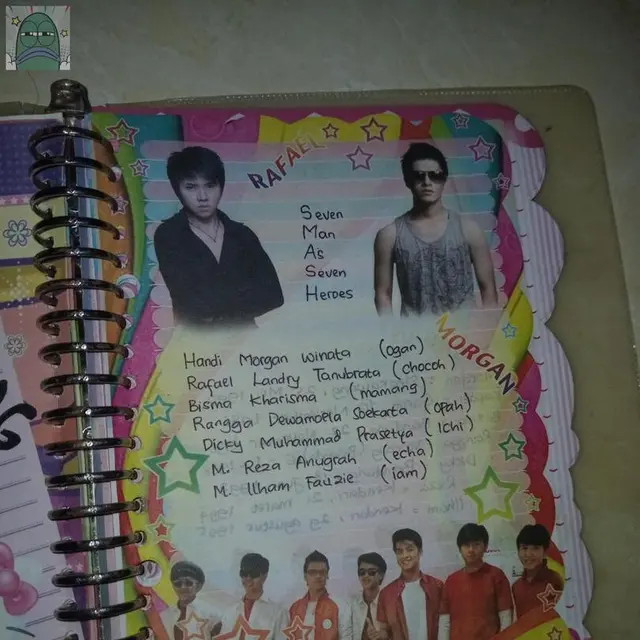 RAFAEL
Seven
Man
As
Seven
Heroes
MORGAN
Handi Morgan winata (ogan)
Rafael Landry Tanubrata (chocoh)
Bisma Kharisma (mamang)
Rangga Dewamoela Soekarta (opah)
Dicky Muhammad Prasetya (Ichi)
M. Reza Anugrah (echa)
M. Ilham Fauzie (iam)